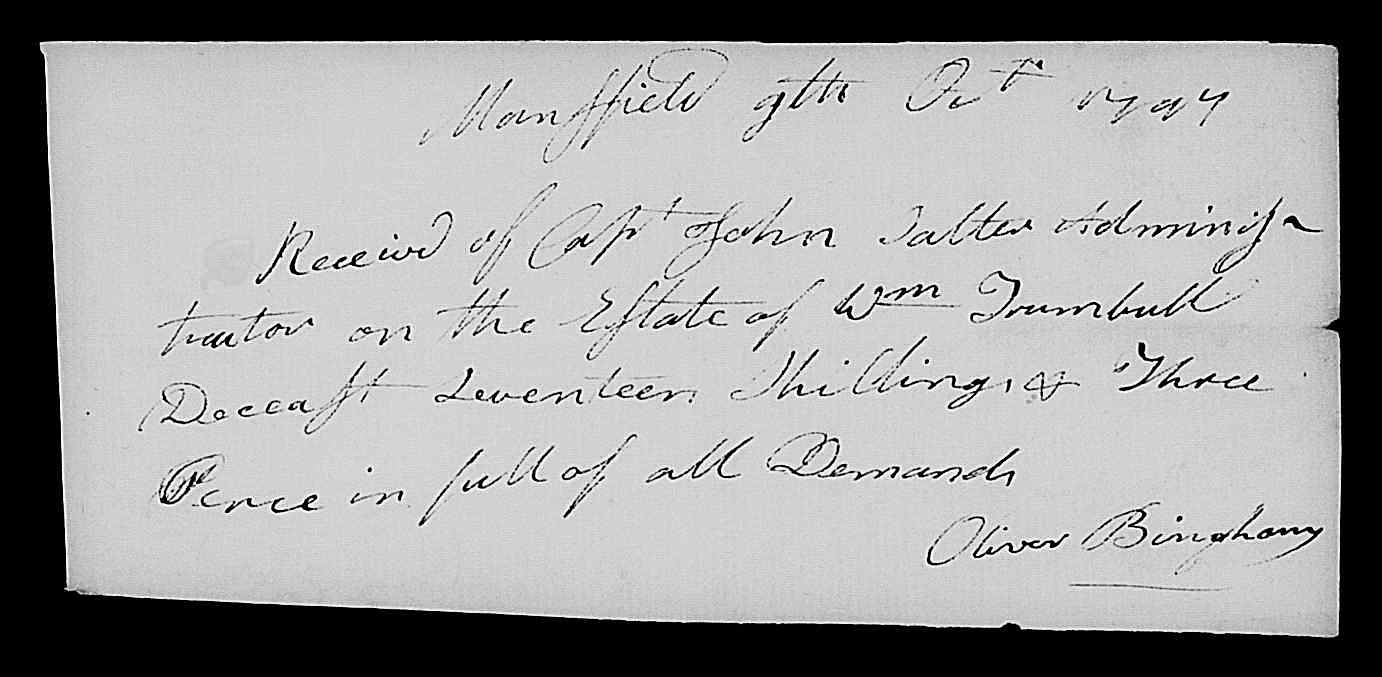 Mansfield 9th Oct 1797
Receivd of Capt John Salter Adminis-
trator on the Estate of Wm Trumbull
Deceast Seventeen Shillings & Three
Pence in full of all Demands
Oliver Bingham